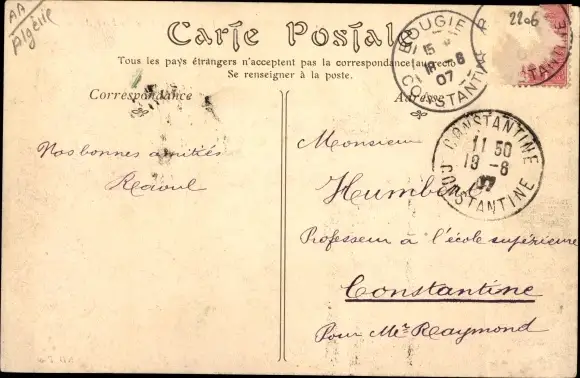 AA
Algérie
Carte Postale
Tous les pays étrangers n'acceptent pas la correspondance au recto
Se renseigner à la poste.
Correspondance
Adresse
2206
BOUGIE
15
18 - 8
07
CONSTANTINE
CONSTANTINE
11 50
19 - 8
07
CONSTANTINE
Nos bonnes amitiés
Raoul
Monsieur
Humbert
Professeur à l'école supérieure
Constantine
Pour Mr Raymond